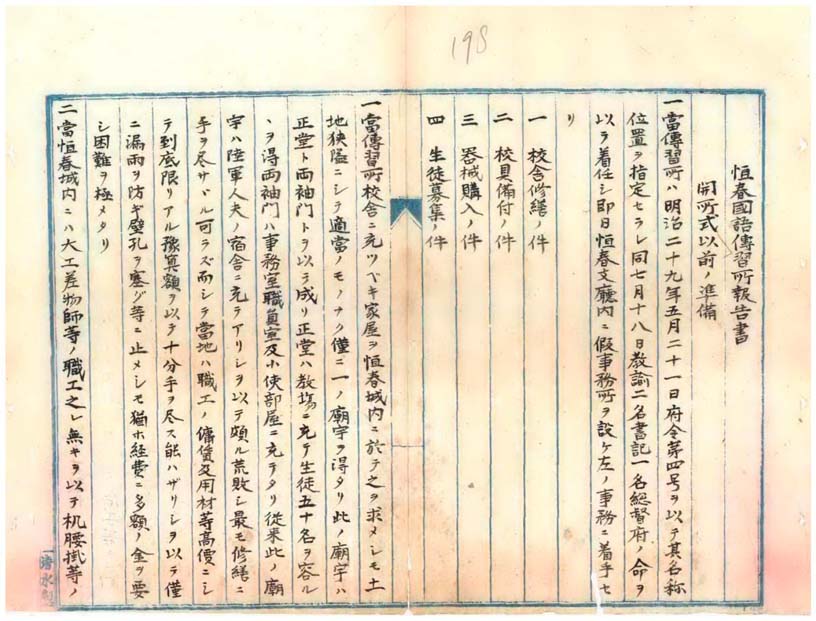 198
恒春國語傳習所報告書
開所式以前ノ準備
一當傳習所ハ明治二十九年五月二十一日府令第四号ヲ以テ其名称
位置ヲ指定セラレ同七月十八日教諭二名書記一名総督府ノ命ヲ
以テ着任シ即日恒春支廳内ニ假事務所ヲ設ケ左ノ事務ニ着手セ
リ
一 校舎修繕ノ件
二 校具備付ノ件
三 器械購入ノ件
四 生徒募集ノ件
一當傳習所校舎ニ充ツベキ家屋ヲ恒春城内ニ於テ之ヲ求メシモ土
地狭隘ニシテ適當ノモノナク僅ニ一ノ廟宇ヲ得タリ此ノ廟宇ハ
正堂ト両袖門トヲ以テ成リ正堂ハ教場ニ充テ生徒五十名ヲ容ル
ヽヲ得両袖門ハ事務室職員室及小使部屋ニ充テタリ従来此ノ廟
宇ハ陸軍人夫ノ宿舎ニ充テアリシヲ以テ頗ル荒敗シ最モ修繕ニ
手ヲ尽サヾル可ラズ而シテ當地ハ職工ノ傭賃及用材等高價ニシ
テ到底限リアル豫算額ヲ以テ十分手ヲ尽ス能ハザリシヲ以テ僅
ニ漏雨ヲ防ギ壁孔ヲ塞グ等ニ止メシモ猶ホ経費ニ多額ノ金ヲ要
シ困難ヲ極メタリ
二當恒春城内ニハ大工差物師等ノ職工之レ無キヲ以テ机腰掛等ノ
清水製